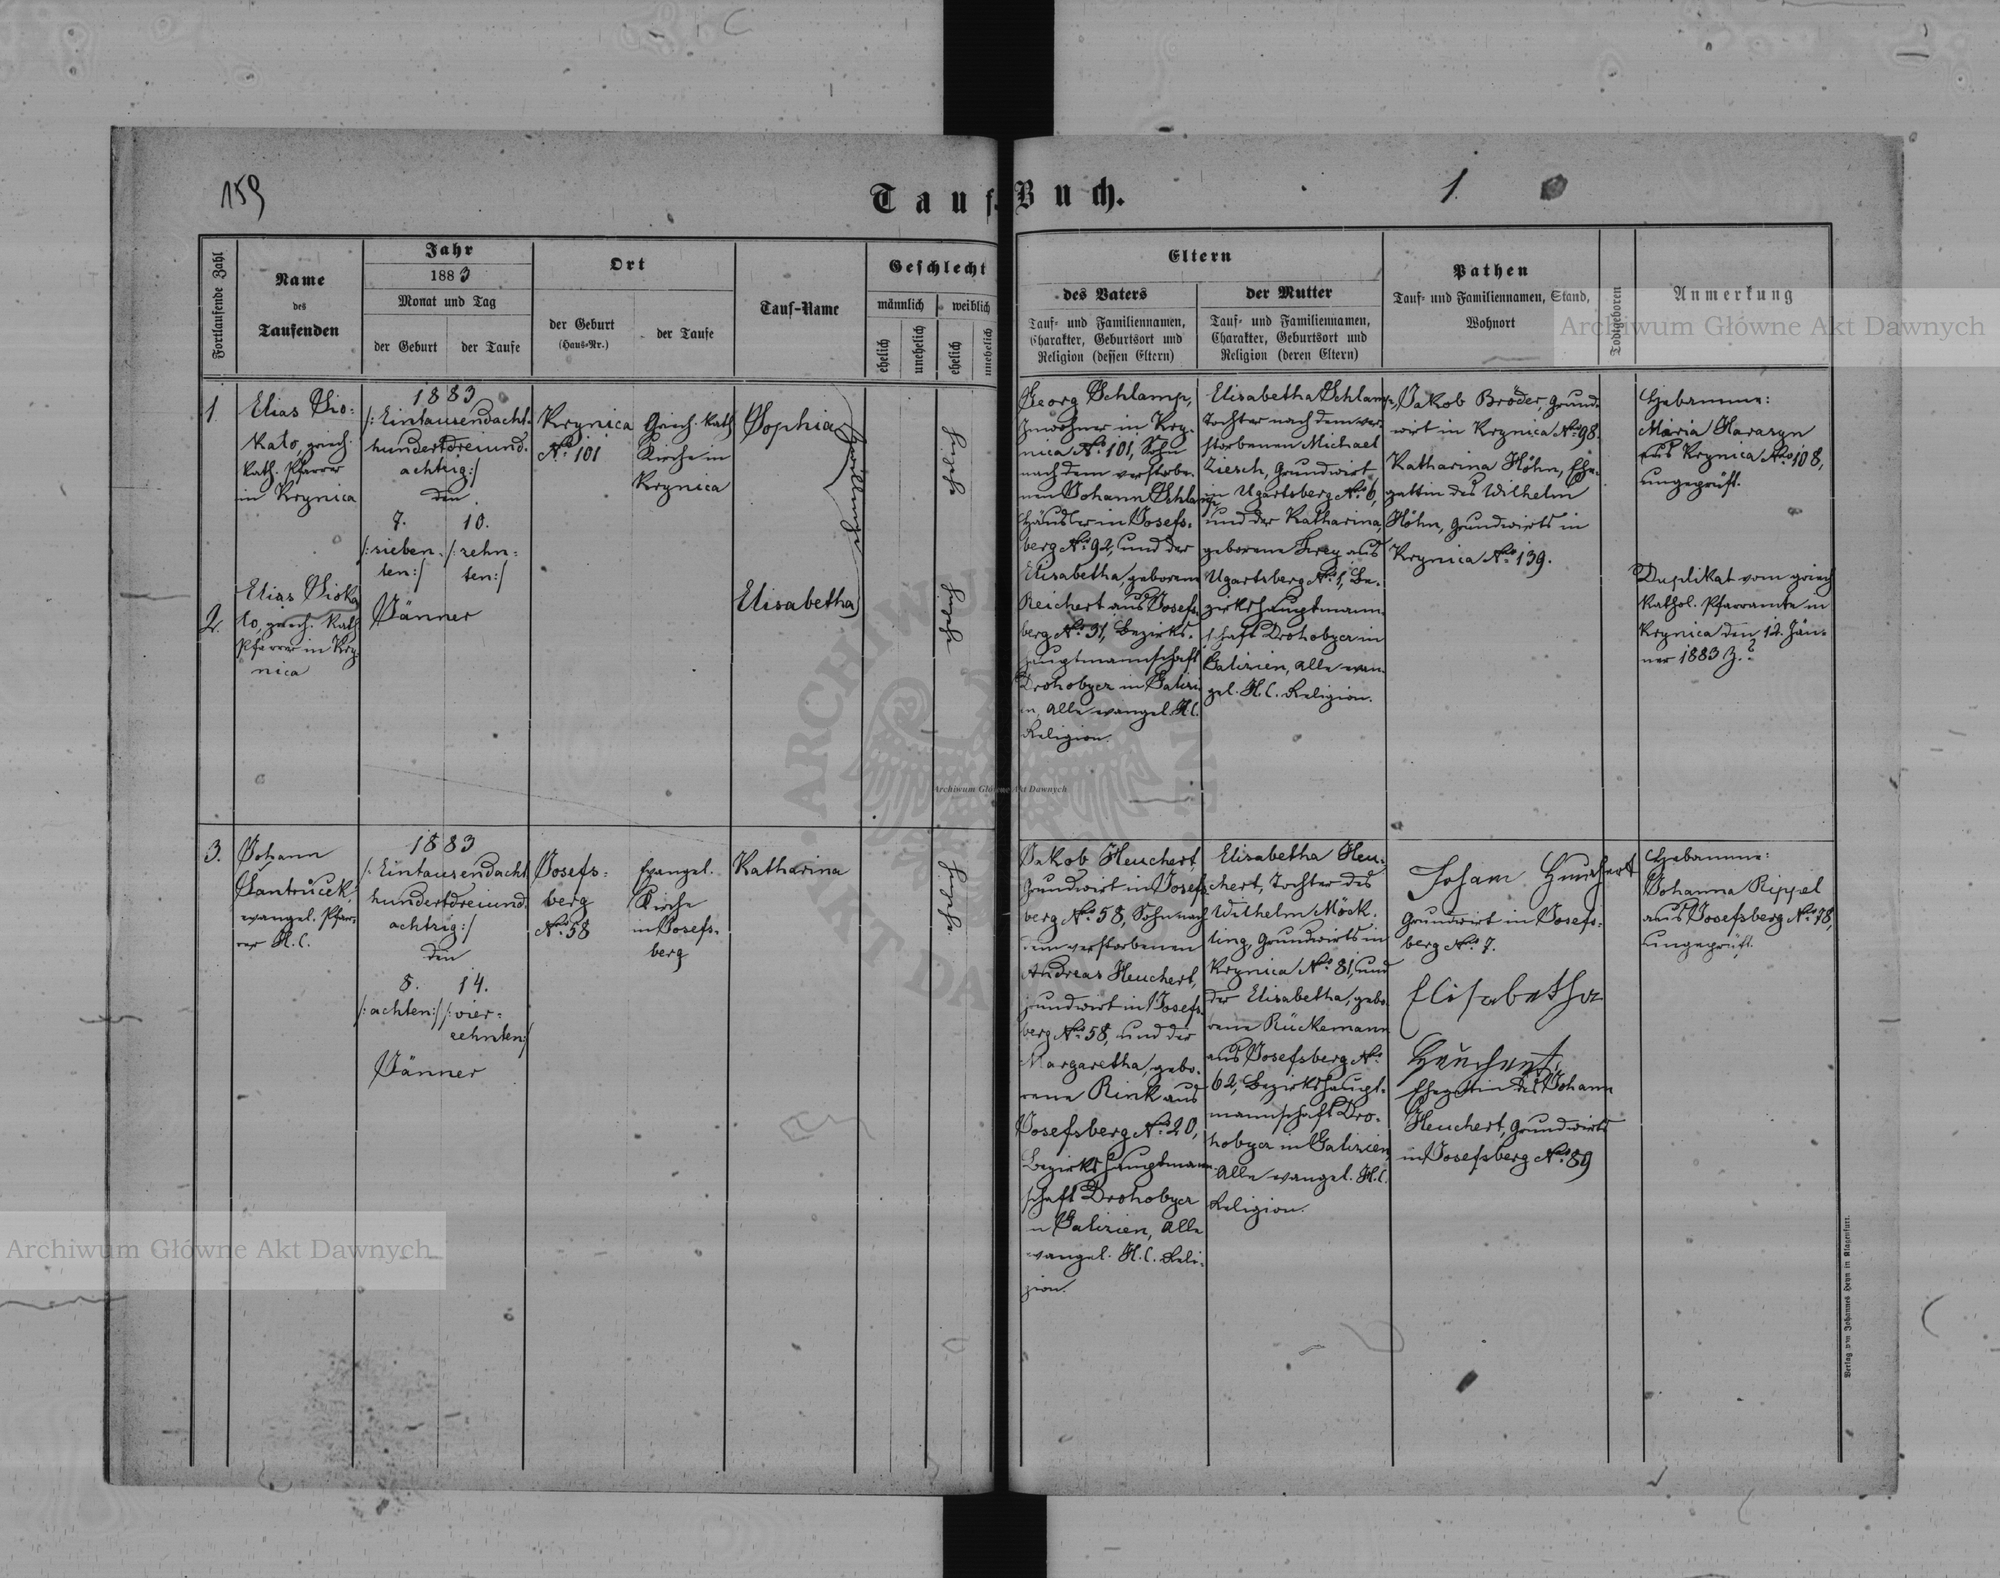 159
Tauf-Buch.
1.
Fortlaufende Zahl
Name
des
Taufenden
Jahr
1883
Monat und Tag
der Geburt
der Taufe
Ort
der Geburt
(Haus-Nr.)
der Taufe
Tauf-Name
Geschlecht
männlich
weiblich
ehelich
unehelich
ehelich
unehelich
Eltern
des Vaters
Tauf- und Familiennamen,
Charakter, Geburtsort und
Religion (dessen Eltern)
der Mutter
Tauf- und Familiennamen,
Charakter, Geburtsort und
Religion (deren Eltern)
Pathen
Tauf- und Familiennamen, Stand,
Wohnort
Todtgeboren
Anmerkung
1
Elias
kato, griech.
kath. Pfarrer
in Krynica
1883
/: Eintausendacht-
hundertdreiund-
achtzig :/
den
7.
10.
/: sieben-
ten :/
/: zehn-
ten :/
Jänner
Krynica
No. 101
Griech. kath
Kirche in
Krynica
Sophia
Zwillinge
eheliche
Georg Schlamp,
Inwohner in Kry-
nica No. 101, Sohn
nach dem verstorbe-
nen Johann Schlamp
Häusler in Josefs-
berg No. 92, und der
Elisabetha, geborene
Reichert aus Josefs-
berg No. 31, Bezirks-
hauptmannschaft
Drohobycz in Galizi-
en, alle evangel. H.C.
Religion.
Elisabetha Schlamp,
Tochter nach dem ver-
storbenen Michael
Ziesch, Grundwirt
in Ugartsberg No. 6,
und der Katharina,
geborene Frey aus
Ugartsberg No. 1, Be-
zirkshauptmann-
schaft Drohobycz in
Galizien, alle evan-
gel. H.C. Religion.
Jakob Bröder, Grund-
wirt in Krynica No. 98.
Katharina Höhn, Ehe-
gattin des Wilhelm
Höhn, Grundwirts in
Krynica No. 139.
Hebamme:
Maria Harasyn
aus Krynica No. 108,
ungeprüft.
2.
Elias
to, griech. kath
Pfarrer in Kry-
nica
Elisabetha
eheliche
Duplikat vom griech
kathol. Pfarramte in
Krynica den 12. Jän-
ner 1883 Z. 2
3.
Johann
Jantruček,
evangel. Pfar-
rer H.C.
1883
/: Eintausendacht
hundertdreiund-
achtzig :/
den
8.
14.
/: achten :/
/: vier-
zehnten :/
Jänner
Josefs-
berg
No. 58
Evangel.
Kirche
in Josefs-
berg
Katharina
eheliche
Jakob Heuchert,
Grundwirt in Josefs-
berg No. 58, Sohn nach
dem verstorbenen
Andreas Heuchert,
Grundwirt in Josefs-
berg No. 58, und der
Margaretha, gebo-
rene Rink aus
Josefsberg No. 20,
Bezirkshauptmann-
schaft Drohobycz
in Galizien, alle
evangel. H.C. Reli-
gion.
Elisabetha Heu-
chert, Tochter des
Wilhelm Möck-
ling, Grundwirts in
Krynica No. 81, und
der Elisabetha, gebo-
rene Rückemann
aus Josefsberg No.
62, Bezirkshaupt-
mannschaft Dro-
hobycz in Galizien,
alle evangel. H.C.
Religion.
Johann Heuchert
Grundwirt in Josefs-
berg No. 7.
Elisabetha
Heuchert,
Ehegattin des Johann
Heuchert, Grundwirts
in Josefsberg No. 89
Hebamme:
Johanna Rippel
aus Josefsberg No. 78,
ungeprüft.
Verlag von Johannes Heyn in Klagenfurt.
Archiwum Główne Akt Dawnych
Archiwum Główne Akt Dawnych
Archiwum Główne Akt Dawnych